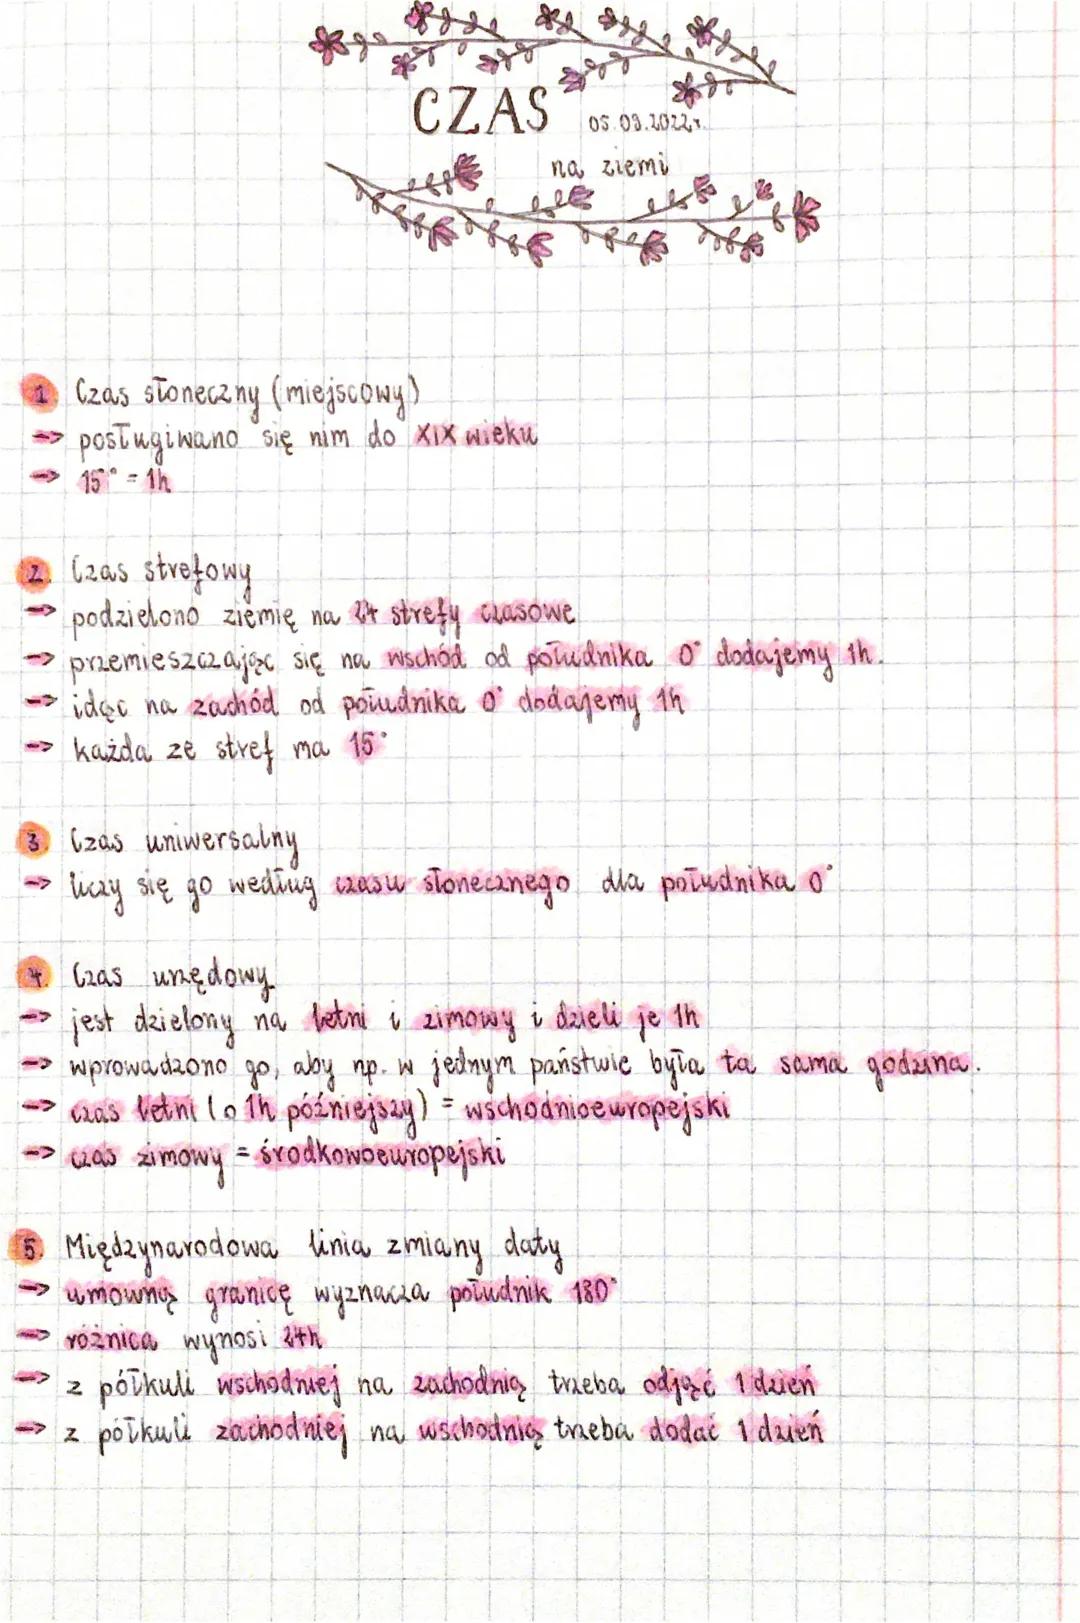 CZAS
05.03.2022r.
na ziemi
1 Czas słoneczny (miejscowy)
→ posługiwano się nim do XIX wieku
→ 15° = 1h
2. Czas strefowy
→ podzielono ziemię na 24 strefy czasowe
→ przemieszczając się na wschód od południka 0° dodajemy 1h.
→ idąc na zachód od południka 0° dodajemy 1h
→ każda ze stref ma 15°
3. Czas uniwersalny
→ liczy się go według czasu słonecznego dla południka 0°
4. Czas urzędowy
→ jest dzielony na letni i zimowy i dzieli je 1h
→ wprowadzono go, aby np. w jednym państwie była ta sama godzina.
→ czas letni (o 1h późniejszy) = wschodnioeuropejski
→ czas zimowy = środkowoeuropejski
5. Międzynarodowa linia zmiany daty
→ umowną granicę wyznacza południk 180°
→ różnica wynosi 24h
→ z półkuli wschodniej na zachodnią trzeba odjąć 1 dzień
→ z półkuli zachodniej na wschodnią trzeba dodać 1 dzień